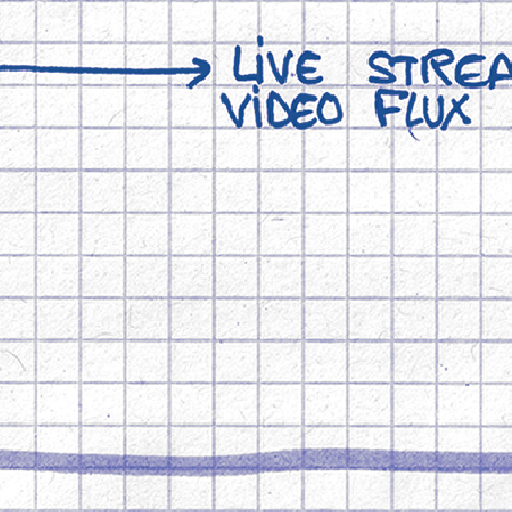 LiVE STREA
ViDEO FLUX